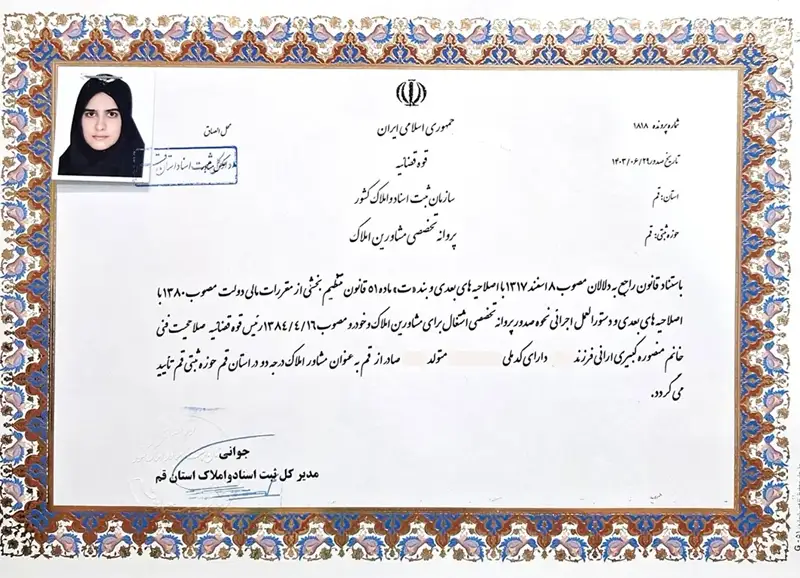 جمهوری اسلامی ایران
قوه قضائیه
سازمان ثبت اسناد و املاک کشور
پروانه تخصصی مشاورین املاک
شماره پرونده ۱۸۱۸
تاریخ صدور ۱۴۰۳/۰۶/۲۹
استان: قم
حوزه ثبتی: قم
محل الصاق
ثبت اسناد استان
باستناد قانون راجع به دلالان مصوب ۸ اسفند ۱۳۱۷ با اصلاحیه های بعدی و بند «ت» ماده ۵۱ قانون تنظیم بخشی از مقررات مالی دولت مصوب ۱۳۸۰ با
اصلاحیه های بعدی و دستورالعمل اجرائی نحوه صدور پروانه تخصصی اشتغال برای مشاورین املاک و خودرو مصوب ۱۳۸۴/۴/۱۶ رئیس قوه قضائیه صلاحیت فنی
خانم منصوره کبیری ارانی فرزند دارای کد ملی متولد صادر از قم به عنوان مشاور املاک درجه دو در استان قم حوزه ثبتی قم تأیید
می گردد.
جوانی
مدیر کل ثبت اسناد و املاک استان قم